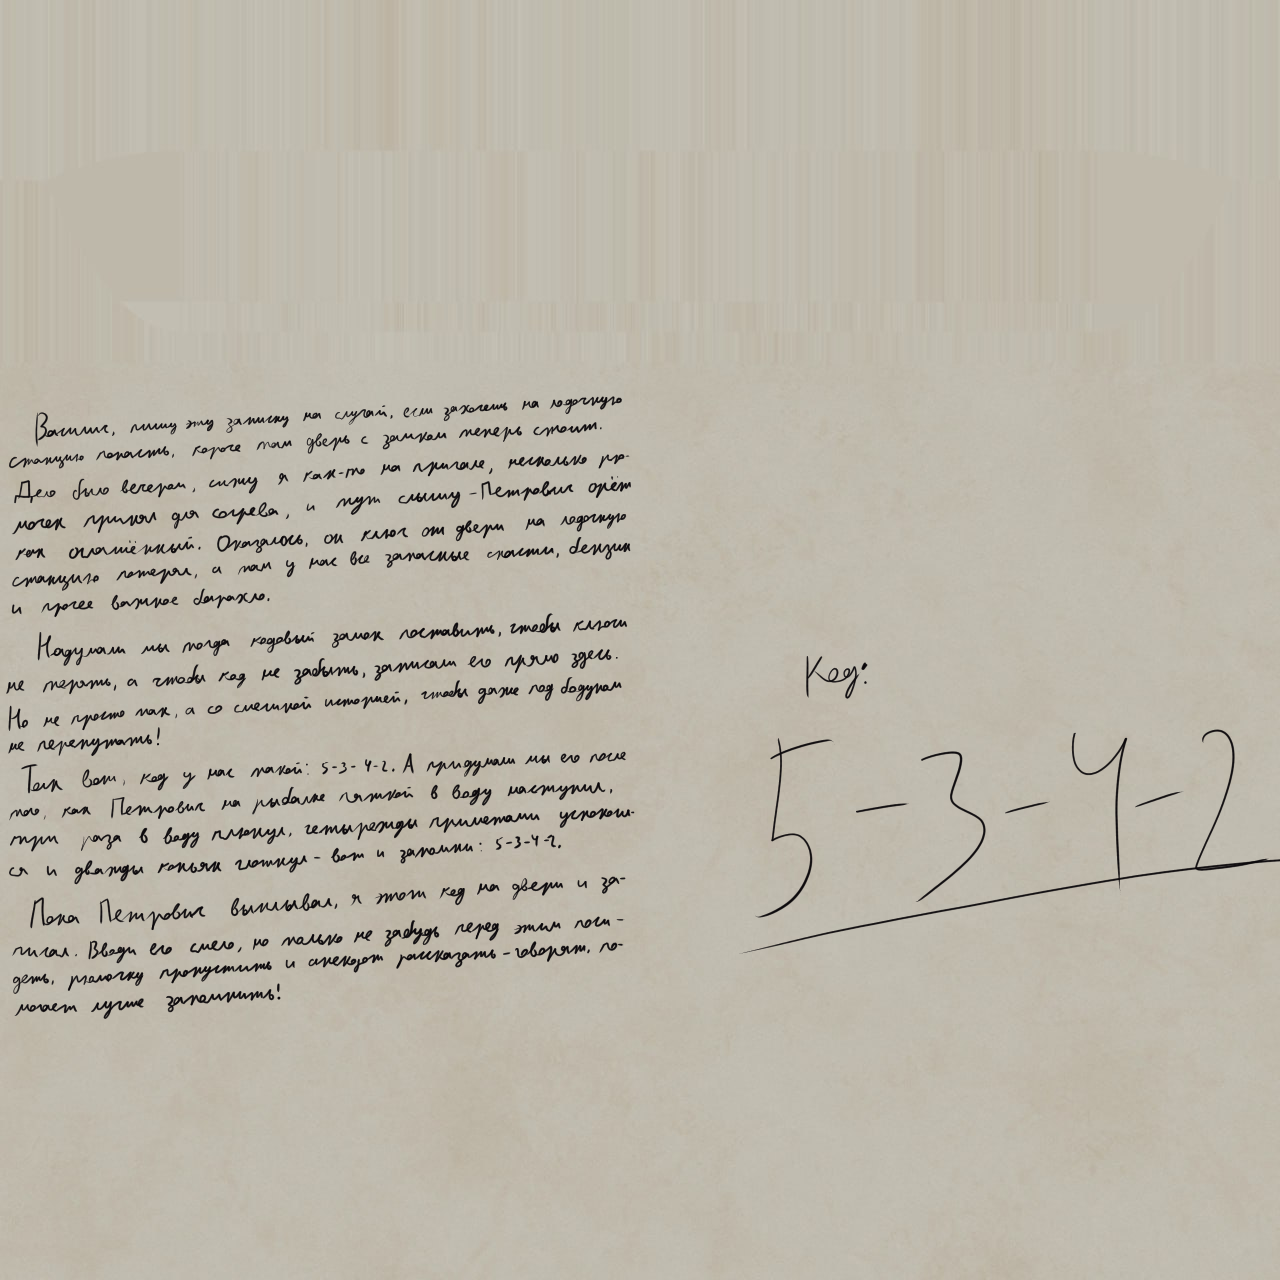 Василич, пишу эту записку на случай, если захочешь на лодочную
станцию попасть, короче там дверь с замком теперь стоит.
Дело было вечером, сижу я как-то на причале, несколько рю-
мочек принял для согрева, и тут слышу - Петрович орёт
как оглашённый. Оказалось, он ключ от двери на лодочную
станцию потерял, а там у нас все запасные снасти, бензин
и прочее важное барахло.
Надумали мы тогда кодовый замок поставить, чтобы ключи
не терять, а чтобы код не забыть, записали его прямо здесь.
Но не просто так, а со смешной историей, чтобы даже под бодуном
не перепутать!
Так вот, код у нас такой: 5-3-4-2. А придумали мы его после
того, как Петрович на рыбалке пяткой в воду наступил,
три раза в воду плюнул, четырежды приметами успокоил-
ся и дважды коньяк глотнул - вот и запомни: 5-3-4-2.
Пока Петрович выплывал, я этот код на двери и за-
писал. Вводи его смело, но только не забудь перед этим поси-
деть, рюмочку пропустить и анекдот рассказать - говорят, по-
могает лучше запомнить!
Код:
5-3-4-2